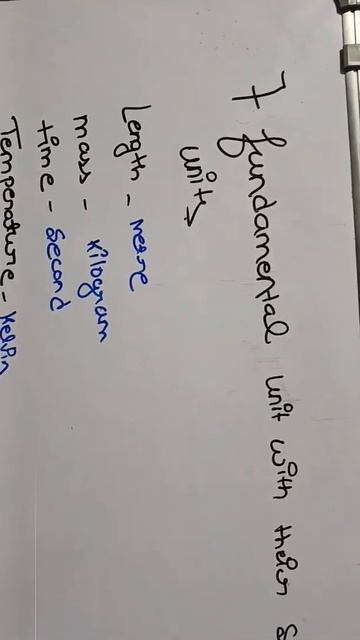 7 fundamental unit with their S
units
Length - metre
mass - kilogram
time - second
Temperature - Kelvin